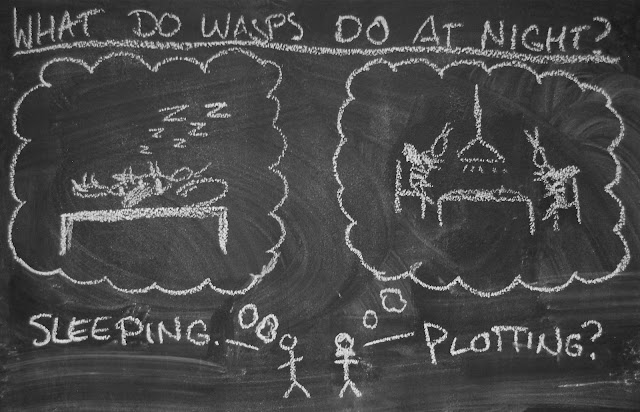 WHAT DO WASPS DO AT NIGHT?
Z Z Z
Z Z
Z Z
Z
SLEEPING.
PLOTTING?